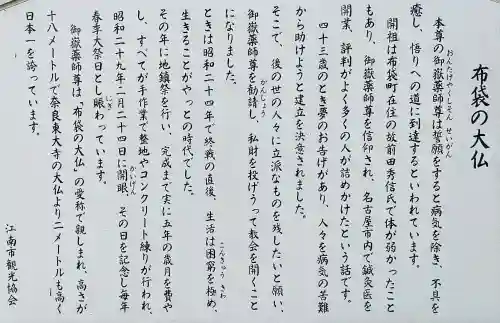 布袋の大仏
本尊の御嶽薬師尊は誓願をすると病気を除き、不具を
おんたけやくしそん せいがん
癒し、悟りへの道に到達するといわれています。
開祖は布袋町在住の故前田秀信氏で体が弱かったこと
もあり、御嶽薬師尊を信仰され、名古屋市内で鍼灸医を
開業、評判がよく多くの人が詰めかけたという話です。
四十三歳のとき夢のお告げがあり、人々を病気の苦難
から助けようと建立を決意されました。
そこで、後の世の人々に立派なものを残したいと願い、
御嶽薬師尊を勧請し、私財を投げうって教会を開くこと
かんじょう
になりました。
ときは昭和二十四年で終戦の直後、生活は困窮を極め、
こんきゅう きわ
生きることがやっとの時代でした。
その年に地鎮祭を行い、完成まで実に五年の歳月を費や
し、すべてが手作業で整地やコンクリート練りが行われ、
昭和二十九年二月二十四日に開眼、その日を記念し毎年
かいげん
春季大祭日とし賑わっています。
にぎ
御嶽薬師尊は「布袋の大仏」の愛称で親しまれ、高さが
十八メートルで奈良東大寺の大仏より二メートルも高く
日本一を誇っています。
江南市観光協会